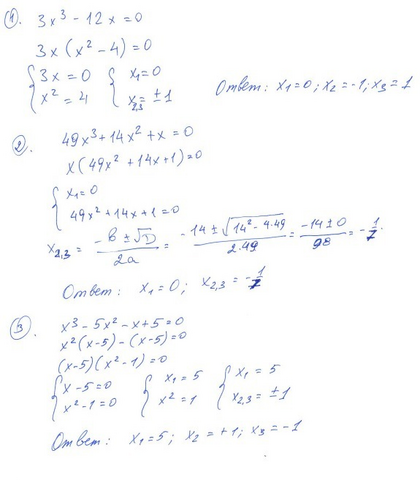 1. 3x³ - 12x = 0
3x (x² - 4) = 0
{ 3x = 0 { x₁ = 0
x² = 4 x₂,₃ = ±1 Ответ: x₁ = 0; x₂ = -1; x₃ = 1
2. 49x³ + 14x² + x = 0
x (49x² + 14x + 1) = 0
{ x₁ = 0
49x² + 14x + 1 = 0
x₂,₃ = (-b ± √D) / 2a = (-14 ± √(14² - 4·49)) / (2·49) = (-14 ± 0) / 98 = -1/7.
Ответ: x₁ = 0; x₂,₃ = -1/7
3. x³ - 5x² - x + 5 = 0
x² (x-5) - (x-5) = 0
(x-5)(x² - 1) = 0
{ x - 5 = 0 { x₁ = 5 { x₁ = 5
x² - 1 = 0 x² = 1 x₂,₃ = ±1
Ответ: x₁ = 5; x₂ = +1; x₃ = -1